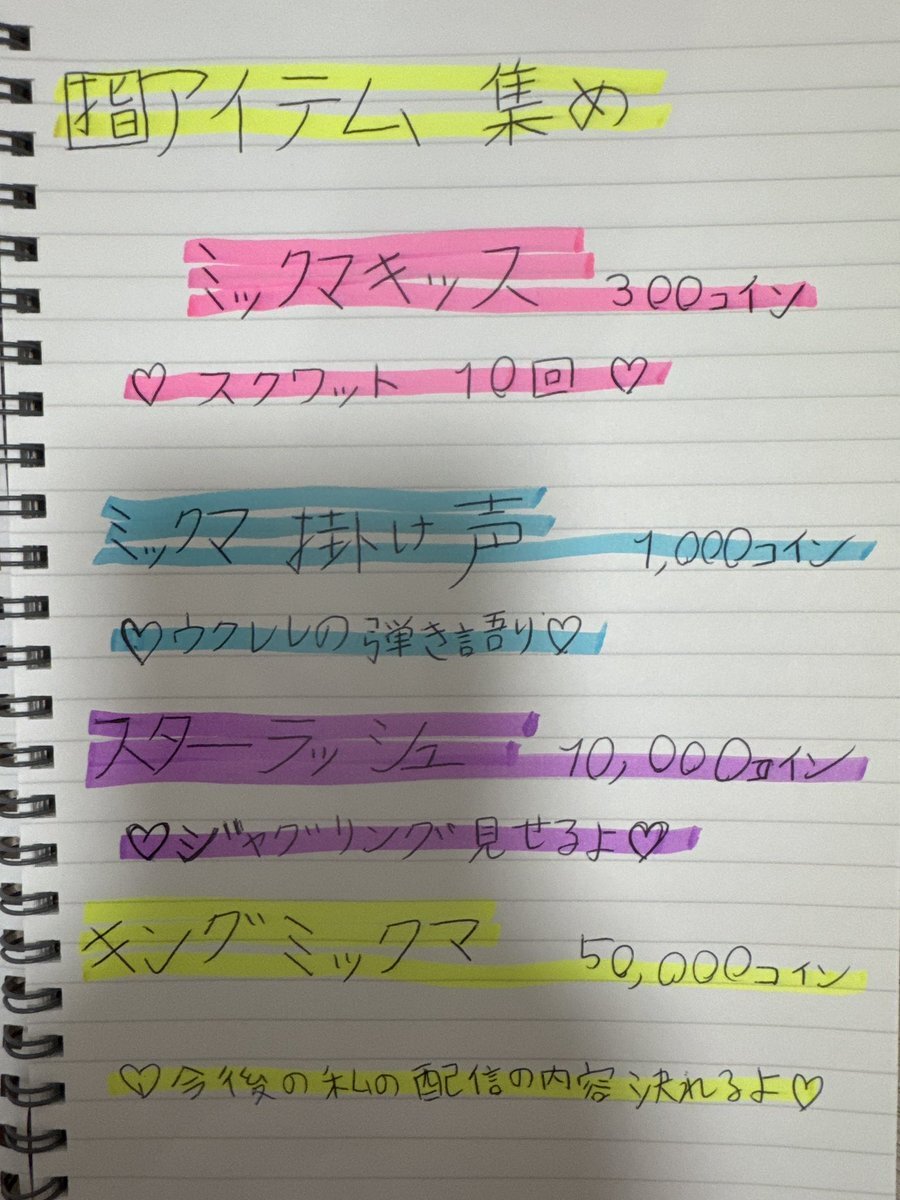 指アイテム集め
ミックマキッス 300コイン
♡スクワット 10回♡
ミックマ 掛け声 1,000コイン
♡ウクレレの弾き語り♡
スターラッシュ 10,000コイン
♡ジャグリング見せるよ♡
キングミックマ 50,000コイン
♡今後の私の配信の内容決れるよ♡